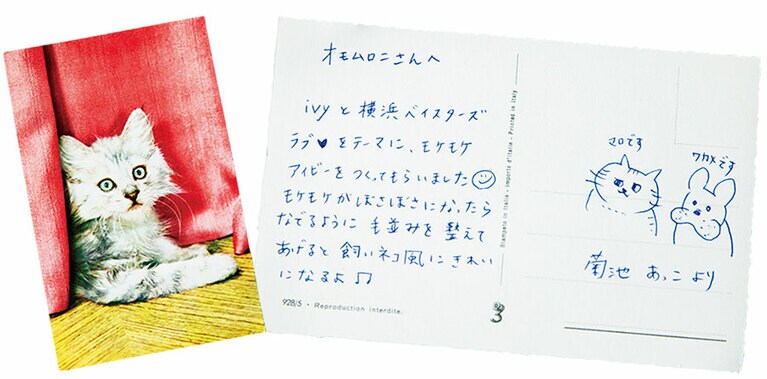 オモムロニさんへ
ivyと横浜ベイスターズ
ラブ♥をテーマに、モケモケ
アイビーをつくってもらいました☺
モケモケがぼさぼさになったら
なでるように毛並みを整えて
あげると飼いネコ風にきれい
になるよ♫
928/5 • Reproduction interdite.
Stampato in Italia - Imporité d'Italie - Printed in Italy
3
マロです
ワカメです
菊池あっこより